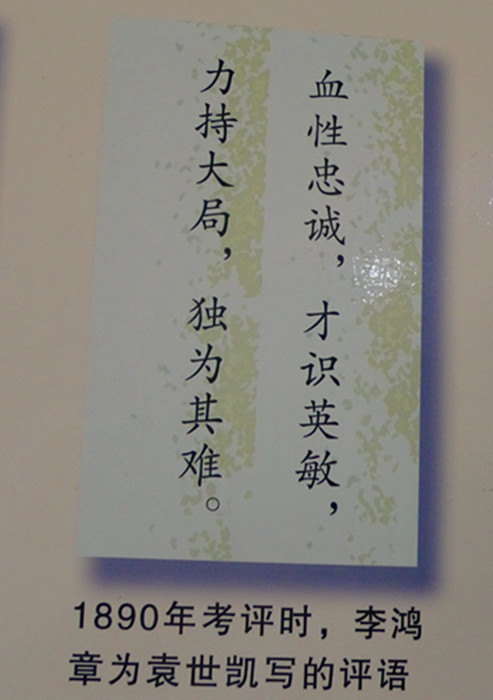 血性忠诚，才识英敏，
力持大局，独为其难。
1890年考评时，李鸿
章为袁世凯写的评语